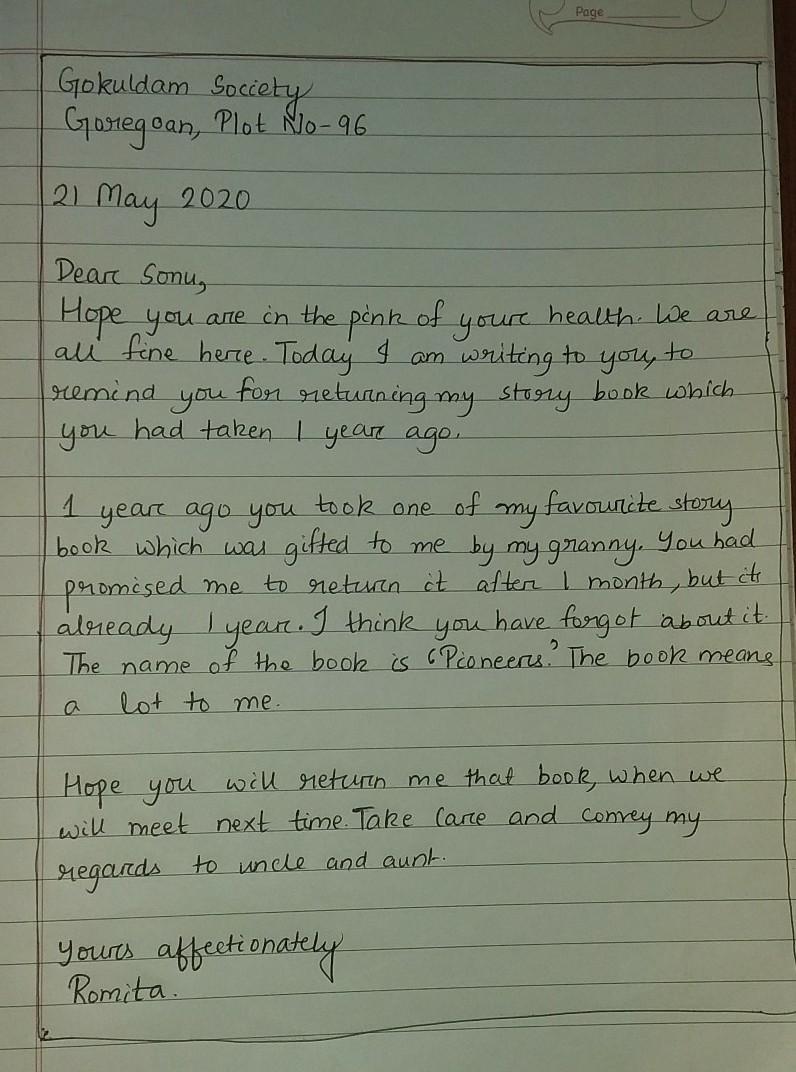 Page
Gokuldam Society
Goregoan, Plot No-96
21 May 2020
Dear Sonu,
Hope you are in the pink of your health. We are
all fine here. Today I am writing to you, to
remind you for returning my story book which
you had taken 1 year ago.
1 year ago you took one of my favourite story
book which was gifted to me by my granny. You had
promised me to return it after 1 month, but its
already 1 year. I think you have forgot about it.
The name of the book is 'Pioneers.' The book means
a lot to me.
Hope you will return me that book, when we
will meet next time. Take Care and convey my
regards to uncle and aunt.
Yours affectionately
Romita.